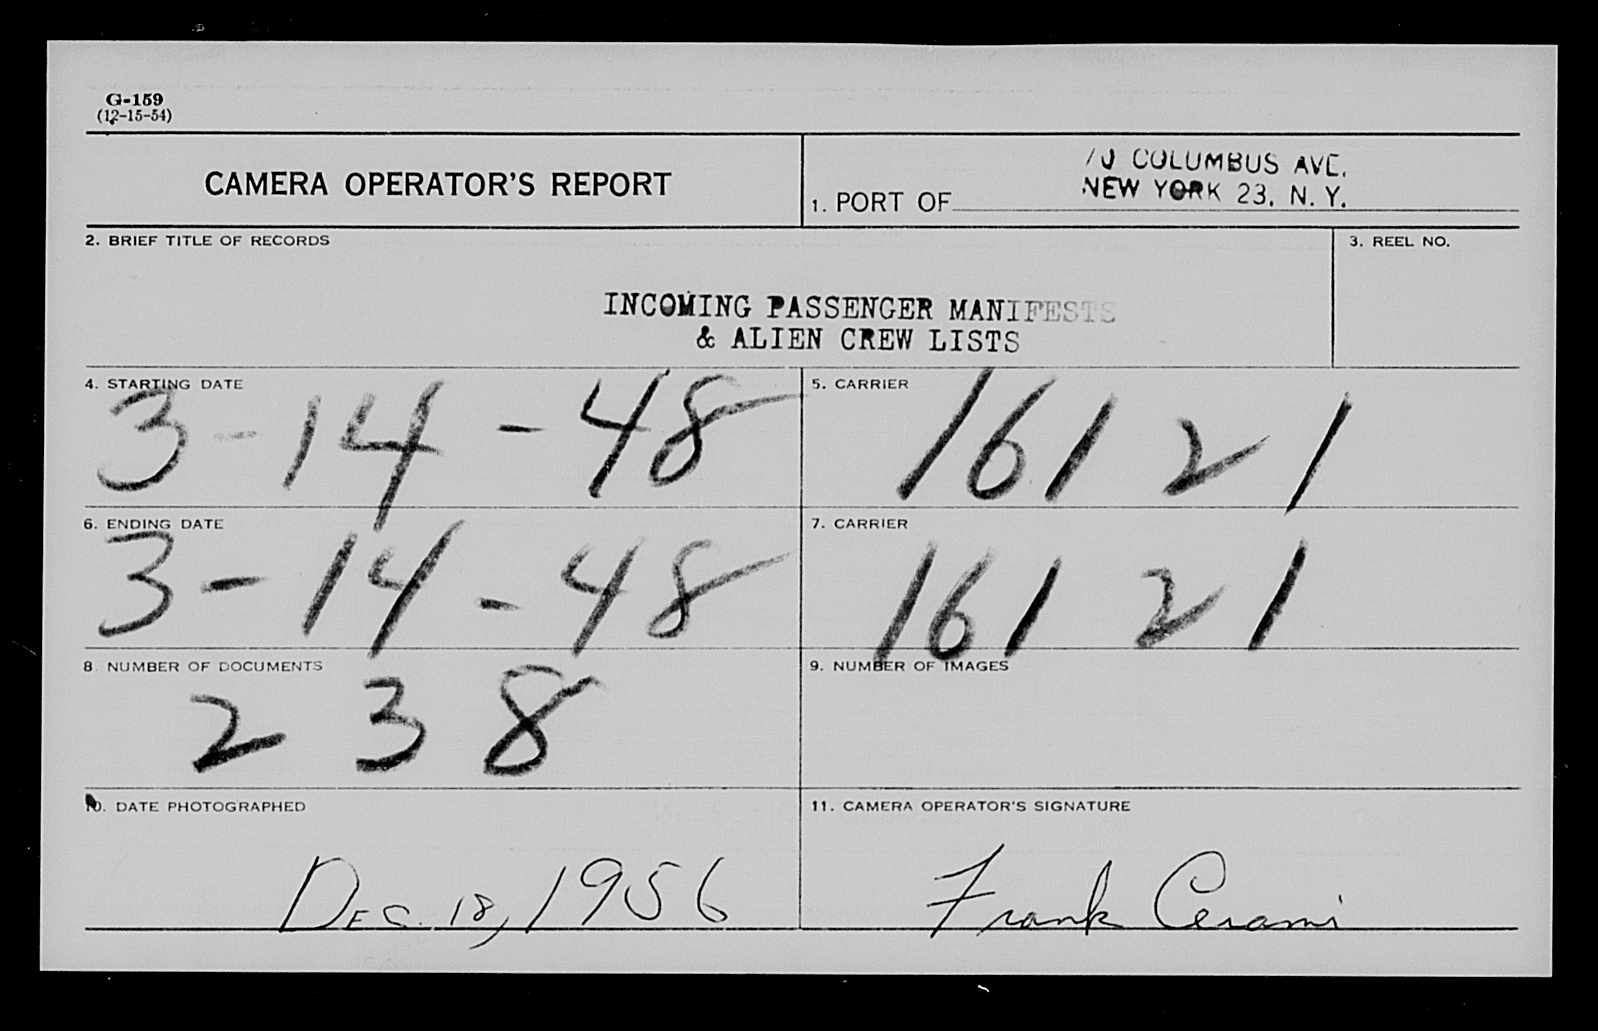 G-159
(12-15-54)
CAMERA OPERATOR'S REPORT
70 COLUMBUS AVE.
1. PORT OF NEW YORK 23, N. Y.
2. BRIEF TITLE OF RECORDS
3. REEL NO.
INCOMING PASSENGER MANIFESTS
& ALIEN CREW LISTS
4. STARTING DATE
3-14-48
5. CARRIER
16121
6. ENDING DATE
3-14-48
7. CARRIER
16121
8 NUMBER OF DOCUMENTS
238
9. NUMBER OF IMAGES
10. DATE PHOTOGRAPHED
DEC. 18, 1956
11. CAMERA OPERATOR'S SIGNATURE
Frank Cerami